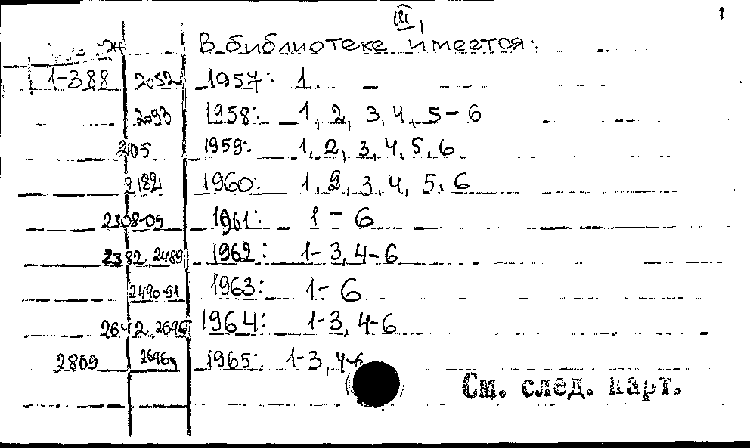 1
В библиотеке имеется:
1-388 2052 1957: 1
2093 1958: 1, 2, 3, 4, 5-6
2105 1959: 1, 2, 3, 4, 5, 6
2182 1960: 1, 2, 3, 4, 5, 6
2308-09 1961: 1-6
2382 2489 1962: 1-3, 4-6
2490-91 1963: 1-6
2642 2696 1964: 1-3, 4-6
2809 1965: 1-3, 4-6
См. след. карт.